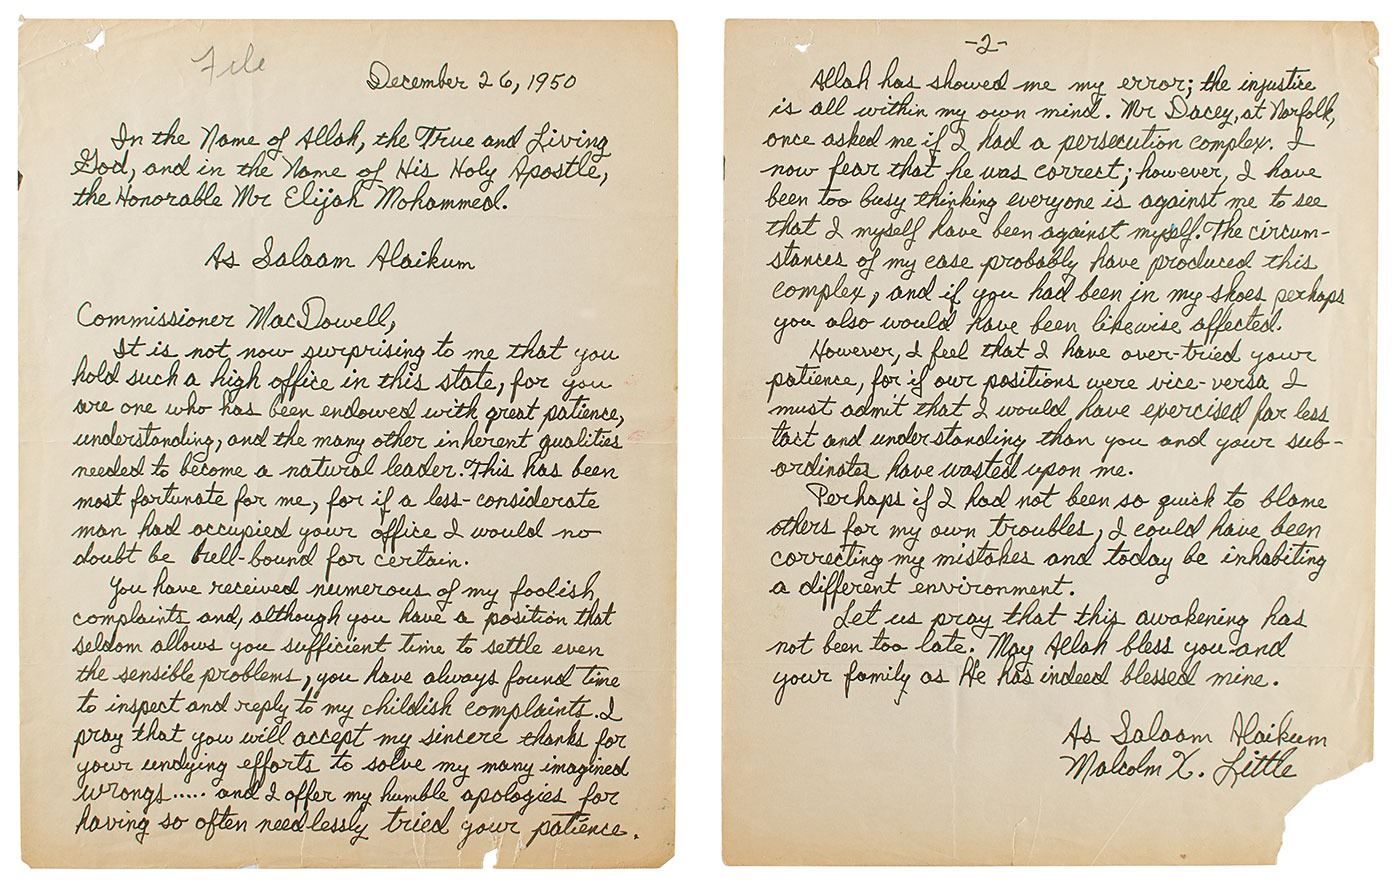 File
December 26, 1950
In the Name of Allah, the True and Living
God, and in the Name of His Holy Apostle,
the Honorable Mr Elijah Mohammed.
As Salaam Alaikum
Commissioner MacDowell,
It is not now surprising to me that you
hold such a high office in this state, for you
are one who has been endowed with great patience,
understanding, and the many other inherent qualities
needed to become a natural leader. This has been
most fortunate for me, for if a less-considerate
man had occupied your office I would no
doubt be hell-bound for certain.
You have received numerous of my foolish
complaints and, although you have a position that
seldom allows you sufficient time to settle even
the sensible problems, you have always found time
to inspect and reply to my childish complaints. I
pray that you will accept my sincere thanks for
your undying efforts to solve my many imagined
wrongs..... and I offer my humble apologies for
having so often needlessly tried your patience.
-2-
Allah has showed me my error; the injustice
is all within my own mind. Mr Dacey, at Norfolk,
once asked me if I had a persecution complex. I
now fear that he was correct; however, I have
been too busy thinking everyone is against me to see
that I myself have been against myself. The circum-
stances of my case probably have produced this
complex, and if you had been in my shoes perhaps
you also would have been likewise affected.
However, I feel that I have over-tried your
patience, for if our positions were vice-versa I
must admit that I would have exercised far less
tact and understanding than you and your sub-
ordinates have wasted upon me.
Perhaps if I had not been so quick to blame
others for my own troubles, I could have been
correcting my mistakes and today be inhabiting
a different environment.
Let us pray that this awakening has
not been too late. May Allah bless you and
your family as He has indeed blessed mine.
As Salaam Alaikum
Malcolm X. Little